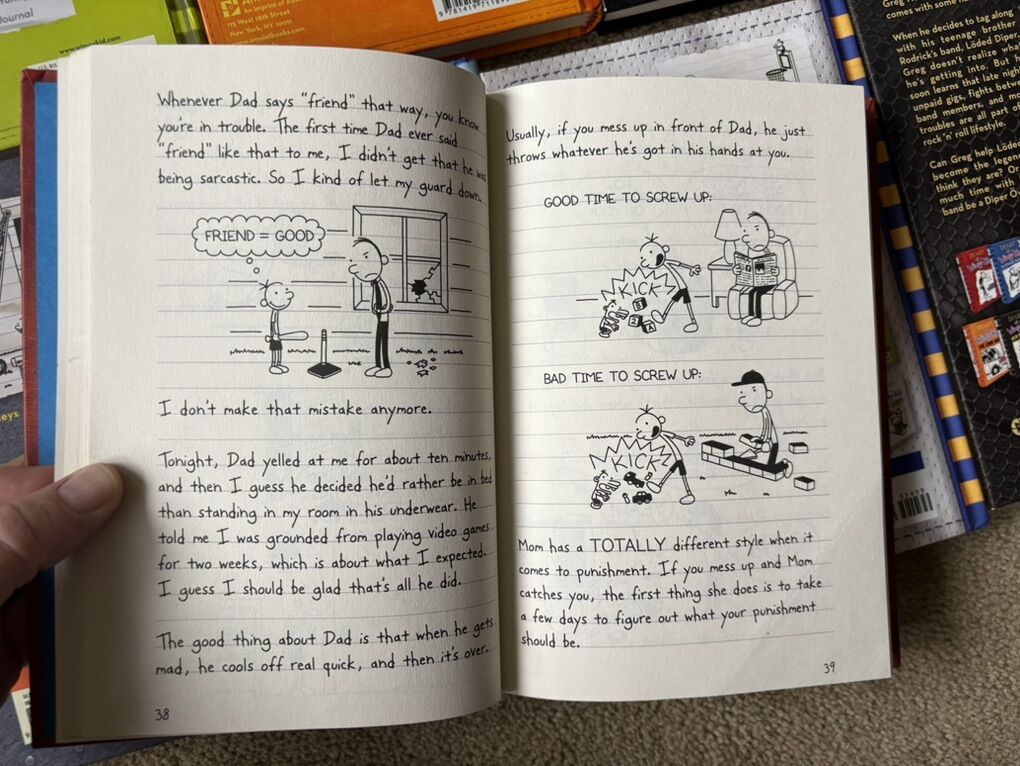 Journal
www.wimpykid.com
An imprint of Abrams
115 West 18th Street
New York, NY 10011
www.amuletbooks.com
Whenever Dad says "friend" that way, you know
you're in trouble. The first time Dad ever said
"friend" like that to me, I didn't get that he was
being sarcastic. So I kind of let my guard down.
FRIEND = GOOD
I don't make that mistake anymore.
Tonight, Dad yelled at me for about ten minutes,
and then I guess he decided he'd rather be in bed
than standing in my room in his underwear. He
told me I was grounded from playing video games
for two weeks, which is about what I expected.
I guess I should be glad that's all he did.
The good thing about Dad is that when he gets
mad, he cools off real quick, and then it's over.
38
Usually, if you mess up in front of Dad, he just
throws whatever he's got in his hands at you.
GOOD TIME TO SCREW UP:
KICK!
BAD TIME TO SCREW UP:
KICK!
Mom has a TOTALLY different style when it
comes to punishment. If you mess up and Mom
catches you, the first thing she does is to take
a few days to figure out what your punishment
should be.
39
comes with some
When he decides to tag along
with his teenage brother
Rodrick's band, Löded Diper
Greg doesn't realize what
he's getting into. But he
soon learns that late night
unpaid gigs, fights between
band members, and mo
troubles are all part of
rock 'n' roll lifestyle.
Can Greg help Löded
become the legen
think they are? Or
much time with
band be a Diper Öv